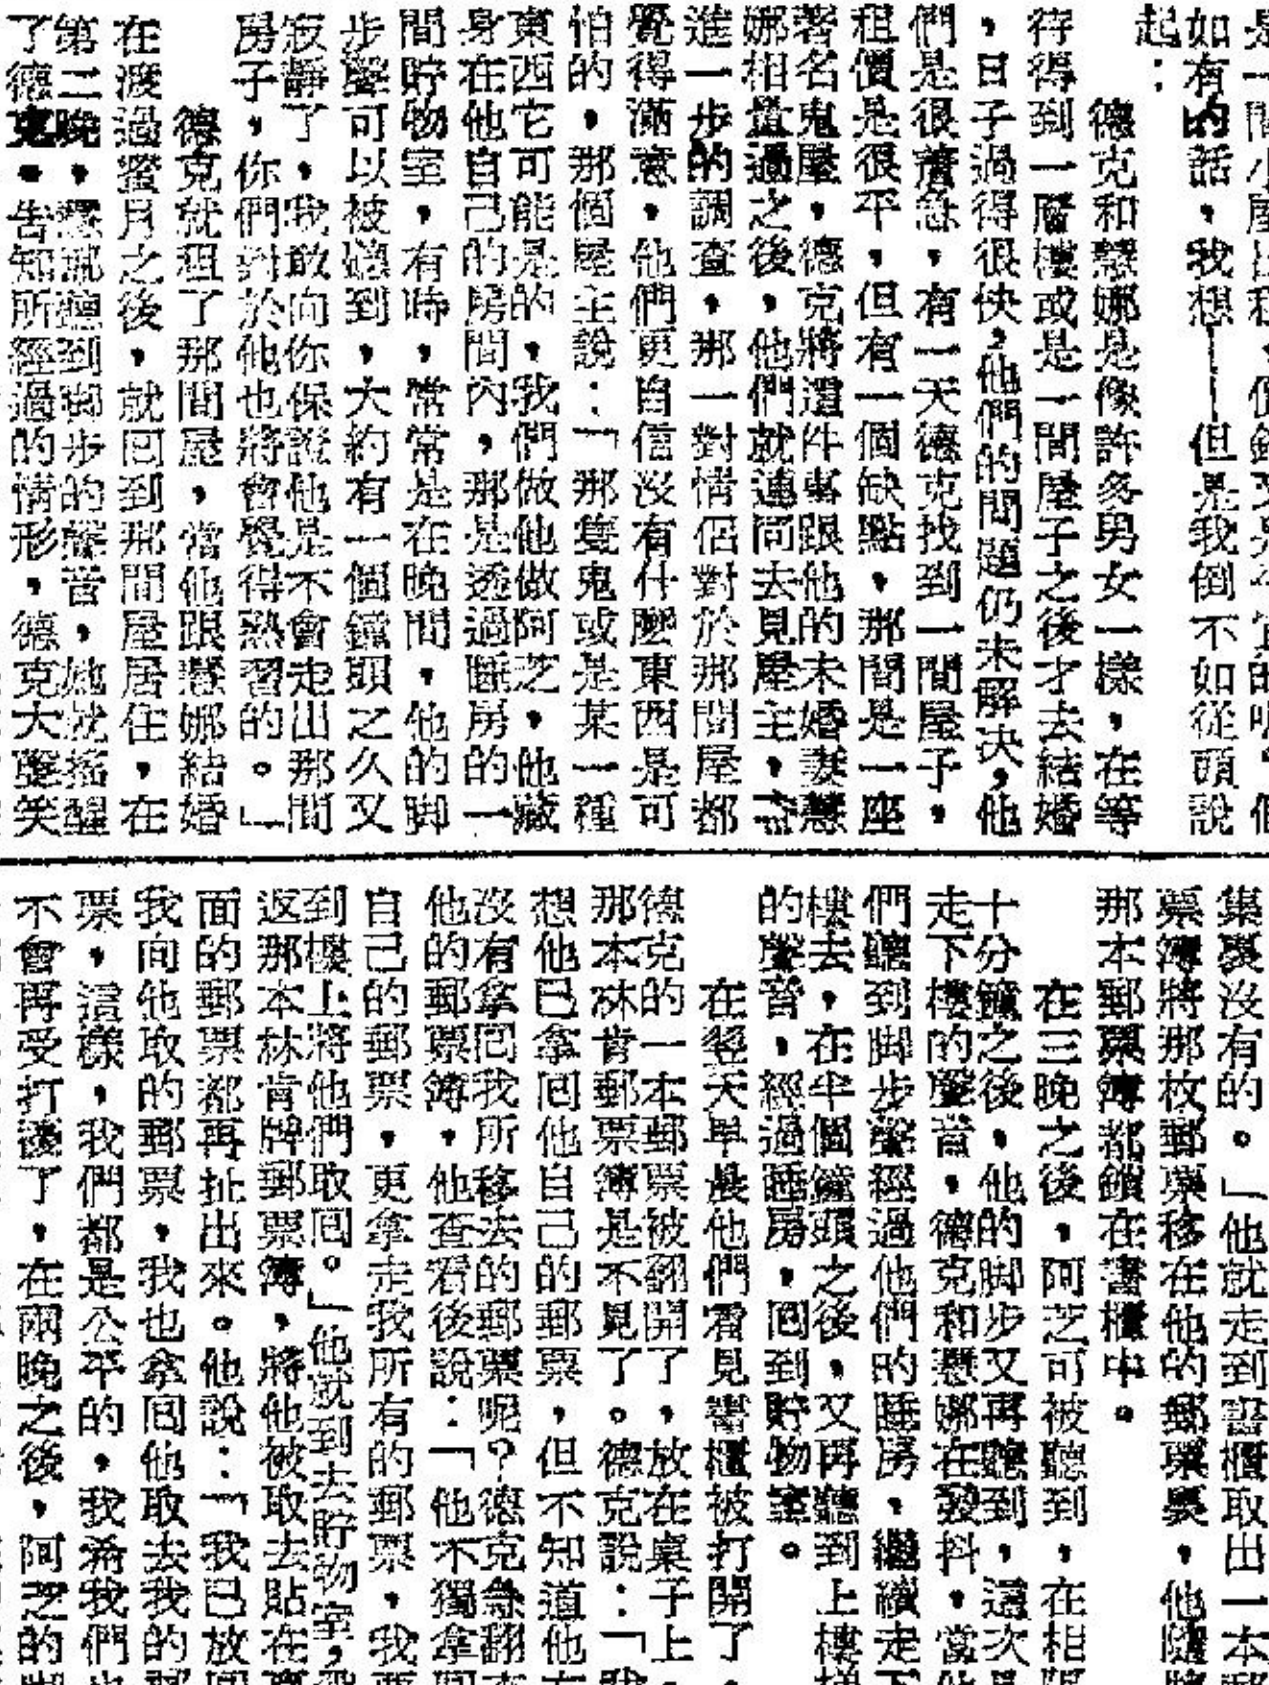 如有的話，我想——但是我倒不如從頭說
起：
德克和慧娜是像許多男女一樣，在等
待得到一層樓或是一間屋子之後才去結婚
，日子過得很快，他們的問題仍未解決，他
們是很着急，有一天德克找到一間屋子，
租價是很平，但有一個缺點，那間是一座
著名鬼屋，德克將這件事跟他的未婚妻慧
娜相量過之後，他們就連同去見屋主，
進一步的調查，那一對情侶對於那間屋都
覺得滿意，他們更自信沒有什麼東西是可
怕的，那個屋主說：「那隻鬼或是某一種
東西它可能是的，我們做他做阿芝，他藏
身在他自己的房間內，那是透過睡房的一
間貯物室，有時，常常是在晚間，他的脚
步聲可以被聽到，大約有一個鐘頭之久又
寂靜了，我敢向你保證他是不會走出那間
房子，你們對於他也將會覺得熟習的。」
德克就租了那間屋，當他跟慧娜結婚
在渡過蜜月之後，就回到那間屋居住，在
第二晚，慧娜聽到脚步的聲音，她就搖醒
了德克。告知所經過的情形，德克大聲笑
集裏沒有的。」他就走到書櫃取出一本郵
票簿將那枚郵票移在他的郵票裏，他隨將
那本郵票簿都鎖在書櫃中。
在三晚之後，阿芝可被聽到，在相隔
十分鐘之後，他的脚步又再聽到，這次是
走下樓的聲音，德克和慧娜在發抖，當他
們聽到脚步聲經過他們的睡房，繼續走下
樓去，在半個鐘頭之後，又再聽到上樓梯
的聲音，經過睡房，回到貯物室。
在翌天早晨他們看見書櫃被打開了，
德克的一本郵票被翻開了，放在桌子上，
那本林肯郵票簿是不見了。德克說：「我
想他已拿回他自己的郵票，但不知道他有
沒有拿回我所移去的郵票呢？德克急翻查
他的郵票簿，他查看後說：「他不獨拿回
自己的郵票，更拿走我所有的郵票，我要
到樓上將他們取回。」他就到去貯物室，
返那本林肯牌郵票簿，將他被取去貼在
面的郵票都再扯出來。他說：「我已放回
我向他取的郵票，我也拿回他取去我的郵
票，這樣，我們都是公平的，我希我們
不會再受打擾了，在兩晚之後，阿芝的